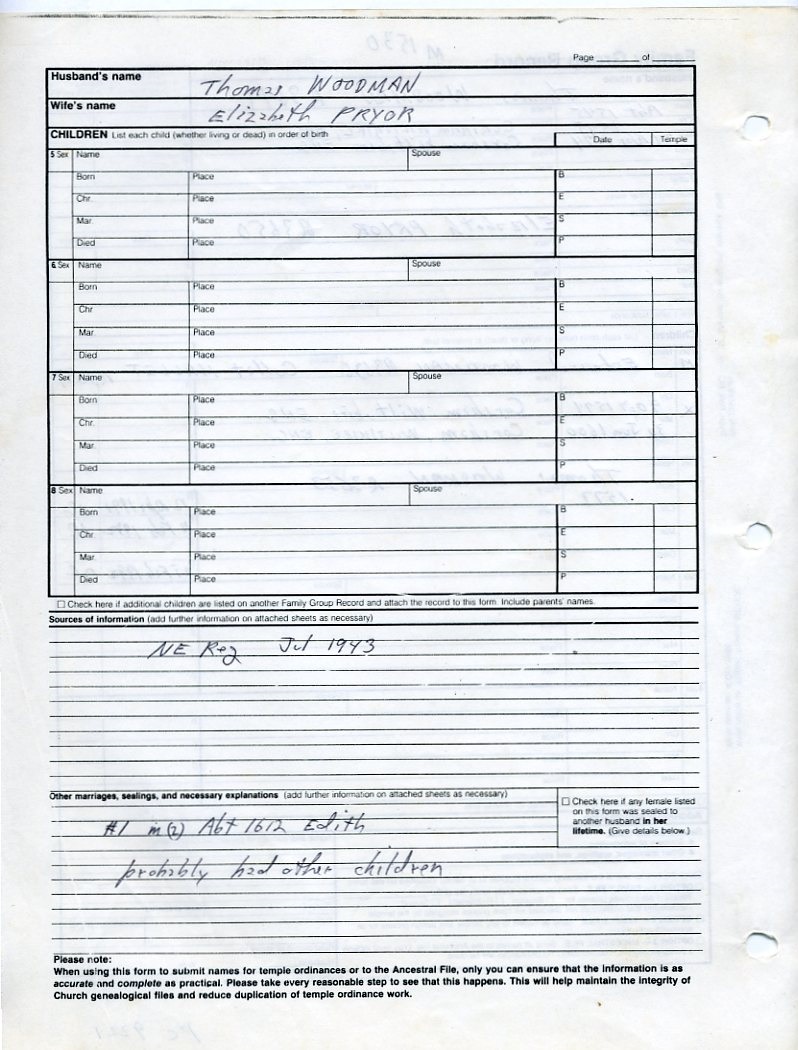 Page ____ of ____
Husband's name Thomas WOODMAN
Wife's name Elizabeth PRYOR
CHILDREN List each child (whether living or dead) in order of birth Date Temple
5 Sex Name Spouse
Born Place B
Chr. Place E
Mar. Place S
Died Place P
6 Sex Name Spouse
Born Place B
Chr Place E
Mar. Place S
Died Place P
7 Sex Name Spouse
Born Place B
Chr. Place E
Mar. Place S
Died Place P
8 Sex Name Spouse
Born Place B
Chr. Place E
Mar. Place S
Died Place P
☐ Check here if additional children are listed on another Family Group Record and attach the record to this form. Include parents' names.
Sources of information (add further information on attached sheets as necessary)
NE Reg Jul 1943
Other marriages, sealings, and necessary explanations (add further information on attached sheets as necessary)
☐ Check here if any female listed
on this form was sealed to
another husband in her
lifetime. (Give details below.)
#1 m(2) Abt 1612 Edith
probably had other children
Please note:
When using this form to submit names for temple ordinances or to the Ancestral File, only you can ensure that the information is as
accurate and complete as practical. Please take every reasonable step to see that this happens. This will help maintain the integrity of
Church genealogical files and reduce duplication of temple ordinance work.